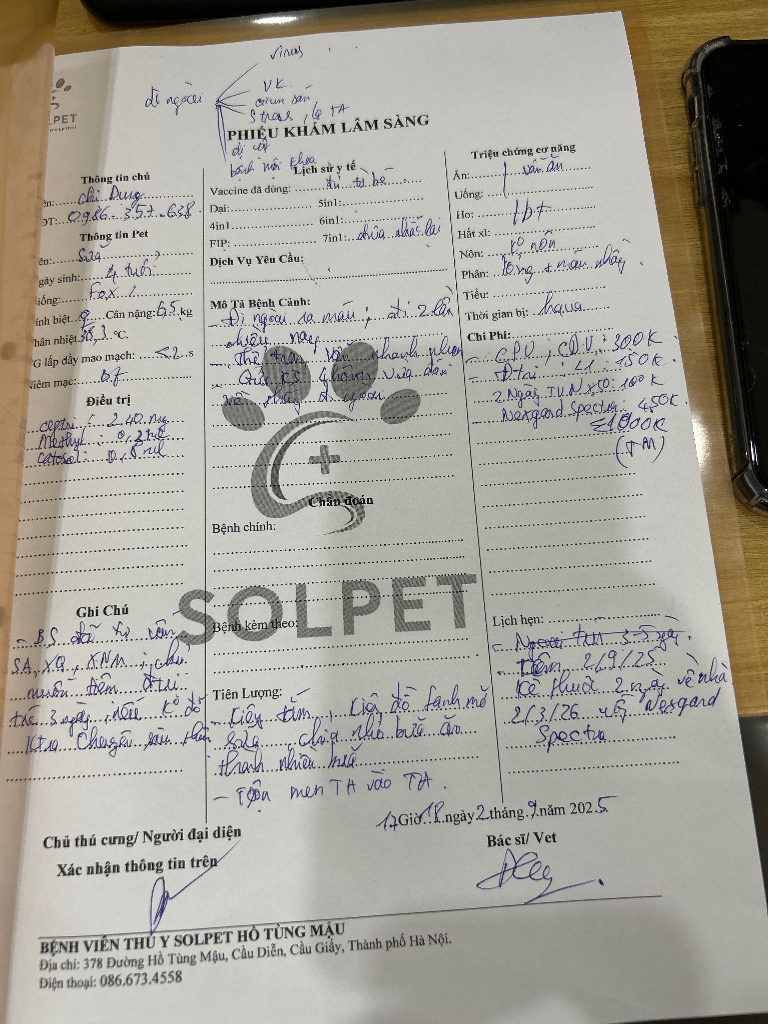 virus
đi ngoài
VK
giun sán
Stress, lạ TA
dị vật
bệnh nội khoa
LPET
PHIẾU KHÁM LÂM SÀNG
Thông tin chủ
Chị Dung
ĐT: 0986.357.638
Thông tin Pet
ên: Sửa
gày sinh: 4 tuổi
iống: Fox
ính biệt Cân nặng: 6,5 kg
hân nhiệt 38,3 °C
G lấp đầy mao mạch: <2 s
Niêm mạc: bt
Điều trị
ceptri: 2.40 mg
Methyl: 0,2 ml
Catosal: 0,8 ml
Ghi Chú
- BS đã tư vấn
SA, XQ, XNM, chủ
muốn tiêm đtri
trc 3 ngày, nếu K° đỡ
ktra chuyên sâu thêm
Lịch sử y tế
Vaccine đã dùng: đủ từ bé
Dại: 5in1:
4in1 6in1:
FIP: 7in1: chưa nhắc lại
Dịch Vụ Yêu Cầu:
Mô Tả Bệnh Cảnh:
- Đi ngoài ra máu, đi 2 lần
chiều nay
- Thể trạng vẫn nhanh nhẹn
- Gửi KS 4 hôm vừa đón
về thấy đi ngoài
Chẩn đoán
Bệnh chính:
SOLPET
Bệnh kèm theo:
Tiên Lượng:
- Kiêng tắm, kiêng đồ tanh mỡ
sữa, chia nhỏ bữa ăn
thành nhiều bữa
- Trộn men TH vào TA.
Triệu chứng cơ năng
Ăn: vẫn ăn
Uống:
Ho: bt
Hắt xì:
Nôn: K° nôn
Phân: lỏng + máu nhầy
Tiểu:
Thời gian bị: hqua
Chi Phí:
- CPV, CDV: 300K
- Đtrị: L1: 150K
2 Ngày TVN x50: 100K
- Nexgard Spectra: 450K
≤ 1000K
(TM)
Lịch hẹn:
- Tiêm 2/9/25
Kê thuốc 2 ngày về nhà
2/3/26 uống Nexgard
Spectra
17 Giờ 18 ngày 2 tháng 9 năm 2025
Chủ thú cưng/ Người đại diện
Xác nhận thông tin trên
Bác sĩ/ Vet
BỆNH VIỆN THÚ Y SOLPET HỒ TÙNG MẬU
Địa chỉ: 378 Đường Hồ Tùng Mậu, Cầu Diễn, Cầu Giấy, Thành phố Hà Nội.
Điện thoại: 086.673.4558